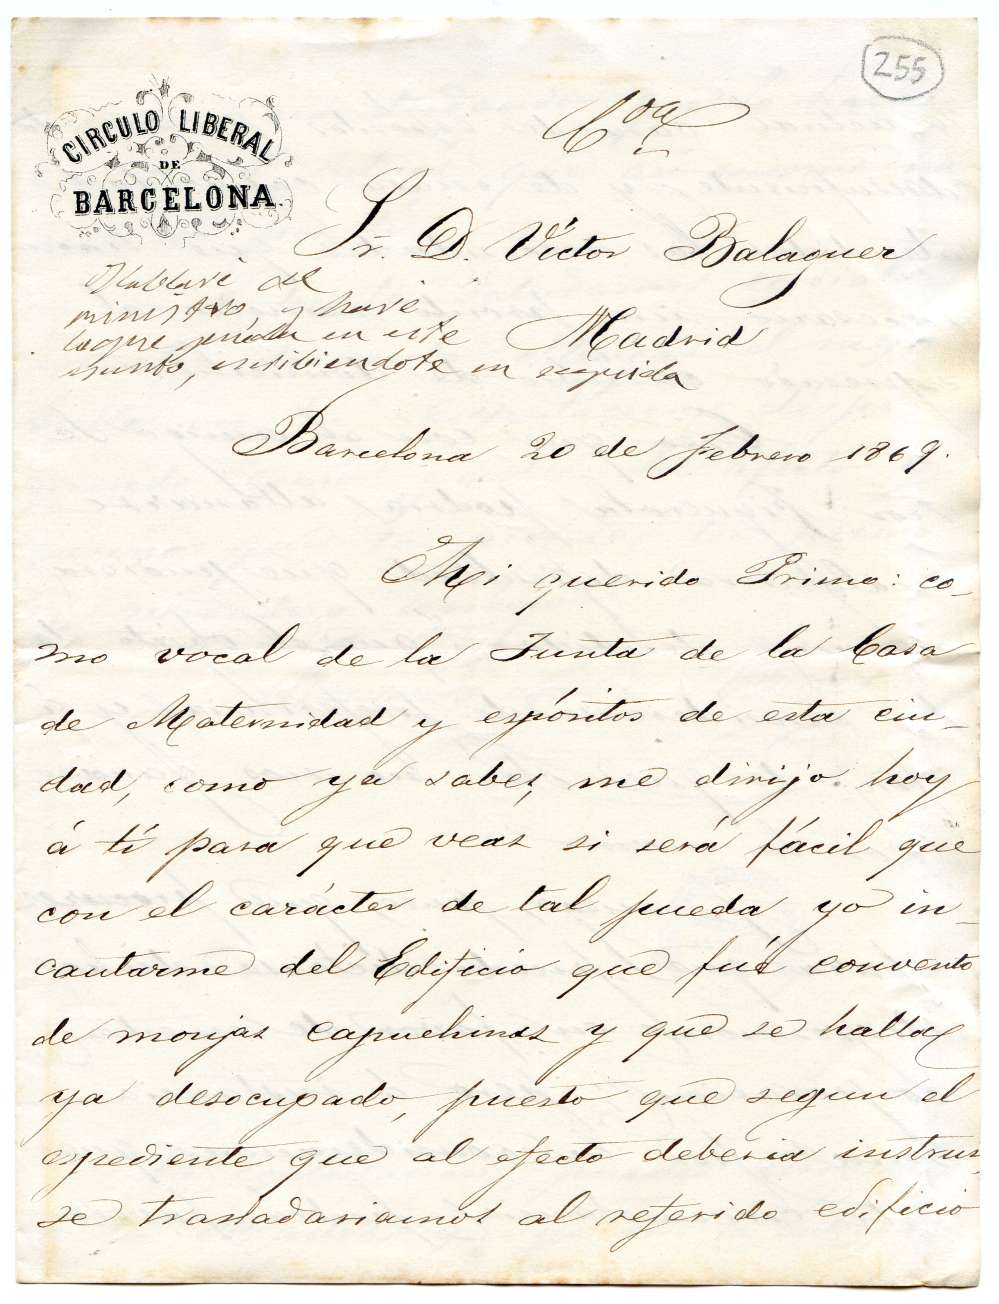 255
CIRCULO LIBERAL
DE
BARCELONA.
Sr. D. Víctor Balaguer
Madrid
Hablaré al
ministro, y haré
lo que pueda en este
asunto, escribiendote en seguida
Barcelona 20 de Febrero 1869.
Mi querido Primo: co-
mo vocal de la Junta de la Casa
de Maternidad y espósitos de esta ciu-
dad, como ya sabes, me dirijo hoy
á tí para que veas si será fácil que
con el carácter de tal pueda yo in-
cautarme del Edificio que fué convento
de monjas capuchinas y que se halla
ya desocupado, puesto que segun el
espediente que al efecto deberia instruir
se trasladariamos al referido edificio